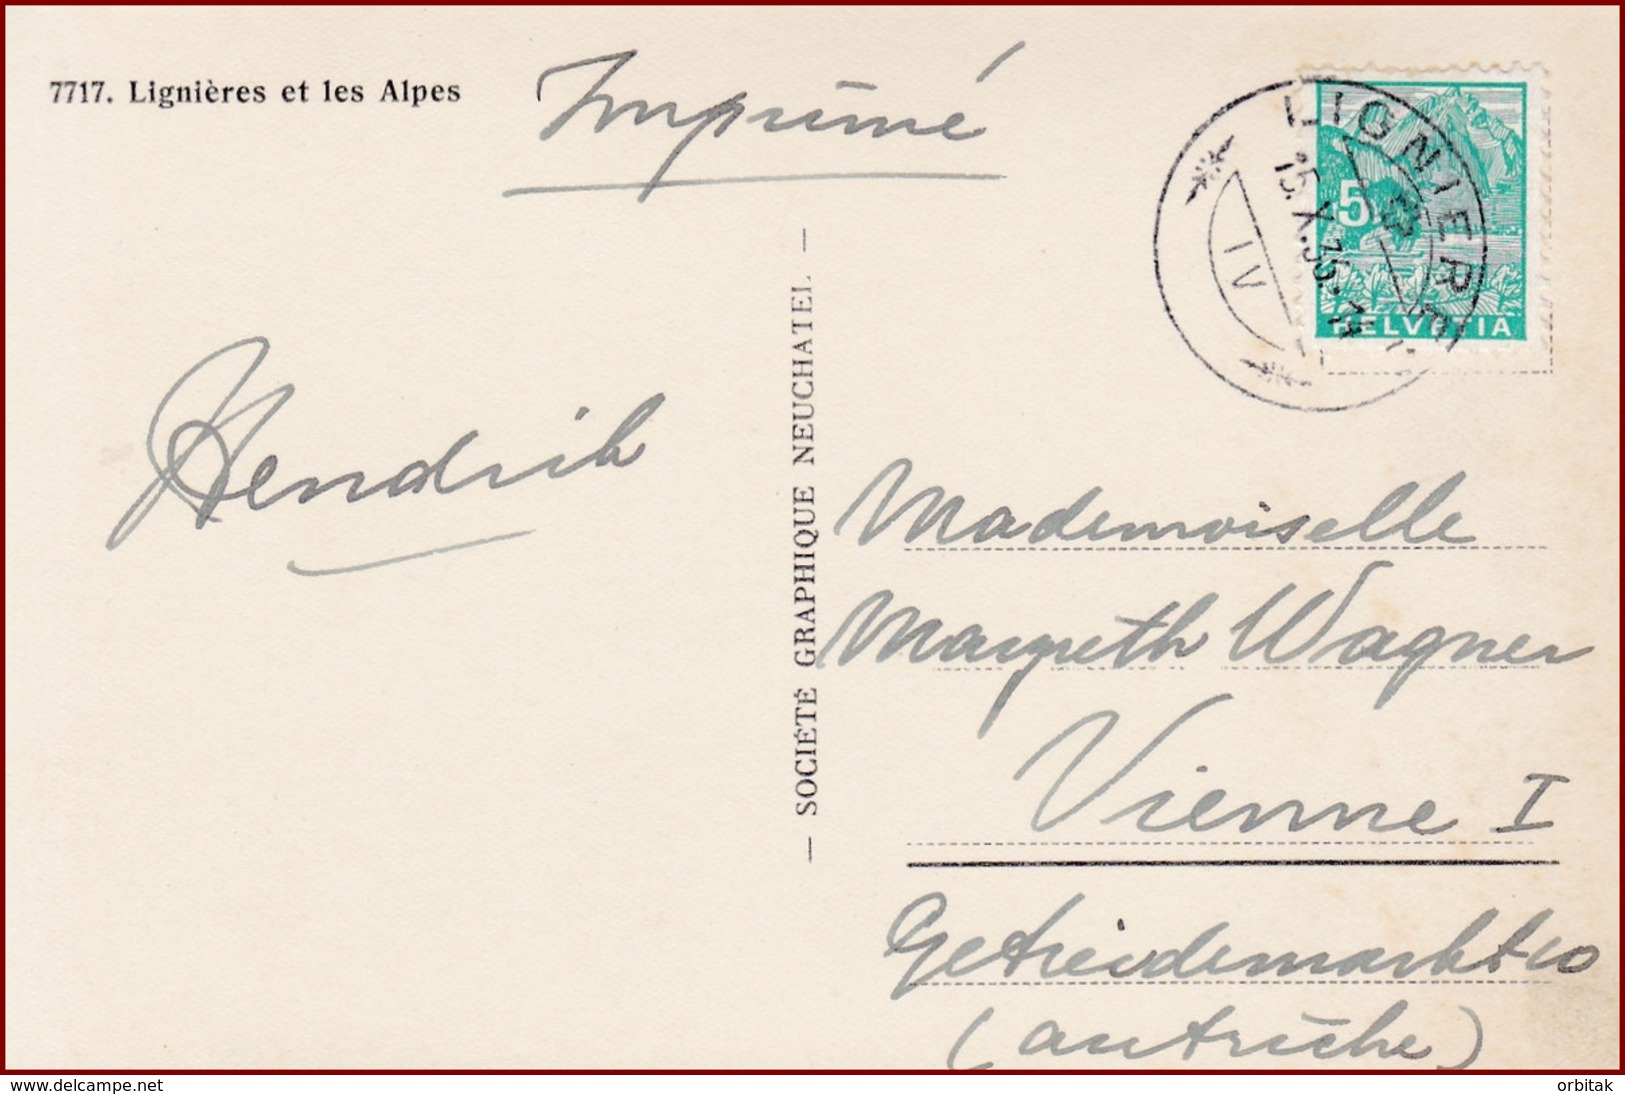 7717. Lignières et les Alpes
Imprimé
LIGNIÈRES
15.X.36.
IV
5
HELVETIA
Hendrik
— SOCIÉTÉ GRAPHIQUE NEUCHATEL —
Mademoiselle
Margreth Wagner
Vienne I
Getreidemarkt 10
(autriche)
delcampe.net
orbitak